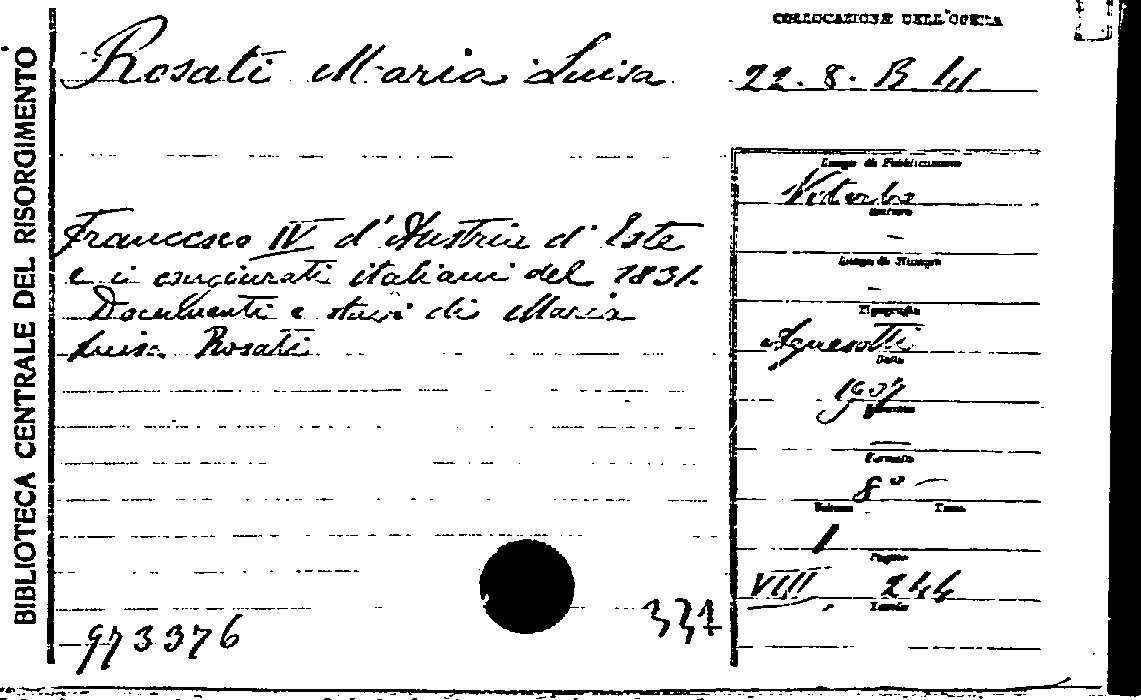 BIBLIOTECA CENTRALE DEL RISORGIMENTO
COLLOCAZIONE DELL'OPERA
Rosati Maria Luisa
22. 8. B 41
Luogo di Pubblicazione
Viterbo
Editore
—
Luogo di Stampa
—
Tipografia
Agnesotti
Data
1907
—
Formato
8° —
Volume Tomo
1
Pagine
VIII, 244
Tavole
Francesco IV d'Austria d'Este
e i congiurati italiani del 1831.
Documenti e studi di Maria
Luisa Rosati
973376
337